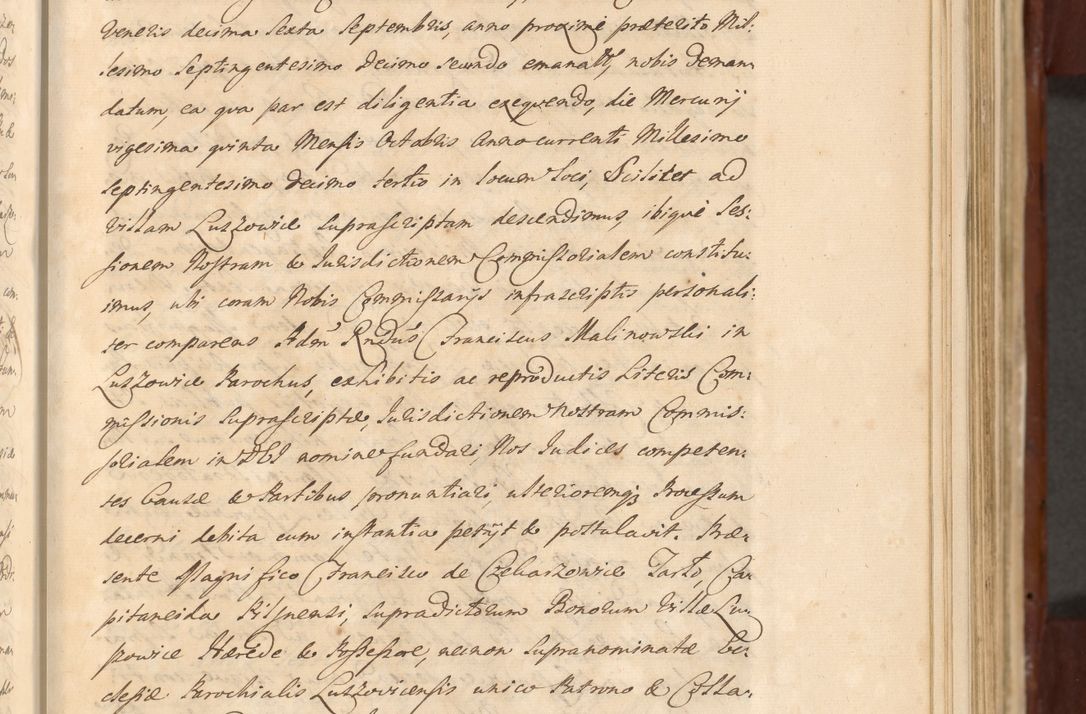 Veneris decima Sexta Septembris, anno proximè præterito Mil:
lesimo Septingentesimo decimo secundo emanatt, nobis deman:
datum, ea qua par est diligentia exequendo, die Mercurij
vigesima quinta Mensis Octobris Anno currenti Millesimo
Septingentesimo decimo tertio in locum Loci, Scilitet ad
Villam Luszowice suprascriptam descendimus, ibiquè Ses:
sionem Nostram & Jurisdictionem Commissorialem constitu:
imus, ubi coram Nobis Commissarijs infrascriptis personali:
ter comparens Admᵈ Rndus Franciscus Malinowski in
Luszowice Parochus, exhibitis ac reproductis Literis Com:
missionis Suprascriptæ, Jurisdictionem Nostram Commis:
sorialem in DEI nomine fundari, Nos Judices competen:
tes Causæ & Partibus pronuntiari, ulterioremq; Processum
decerni debita cum instantia petijt & postulavit. Præ:
sente Magnifico Francisco de Czekarzowice Tarło, Ca:
pitaneida Pilsnensi, supradictorum Bonorum Villæ Lu:
szowice Hærede & Possessore, necnon supranominatæ Ec:
clesiæ Parochialis Luszovicensis unico Patrono & Colla: